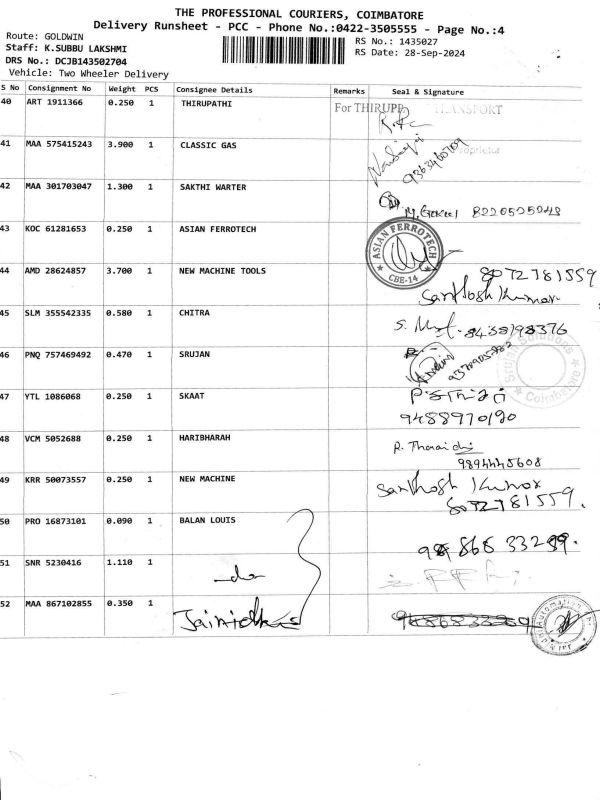 THE PROFESSIONAL COURIERS, COIMBATORE
Delivery Runsheet - PCC - Phone No.:0422-3505555 - Page No.:4
Route: GOLDWIN
Staff: K.SUBBU LAKSHMI
DRS No.: DCJB143502704
Vehicle: Two Wheeler Delivery
RS No.: 1435027
RS Date: 28-Sep-2024
S No Consignment No Weight PCS Consignee Details Remarks Seal & Signature
40 ART 1911366 0.250 1 THIRUPATHI For THIRUPP TRANSPORT
41 MAA 575415243 3.900 1 CLASSIC GAS 9363460709 Proprietor
42 MAA 301703047 1.300 1 SAKTHI WARTER 8220525248
43 KOC 61281653 0.250 1 ASIAN FERROTECH ASIAN FERROTECH CBE-14
44 AMD 28624857 3.700 1 NEW MACHINE TOOLS 8072781559 Santhosh Kumar
45 SLM 355542335 0.580 1 CHITRA 8438198376
46 PNQ 757469492 0.470 1 SRUJAN Srujan Solutions Coimbatore
47 YTL 1086068 0.250 1 SKAAT 9488970190
48 VCM 5052688 0.250 1 HARIBHARAH 9894445608
49 KRR 50073557 0.250 1 NEW MACHINE Santhosh Kumar 8072781559.
50 PRO 16873101 0.090 1 BALAN LOUIS
51 SNR 5230416 1.110 1 -do-
52 MAA 867102855 0.350 1